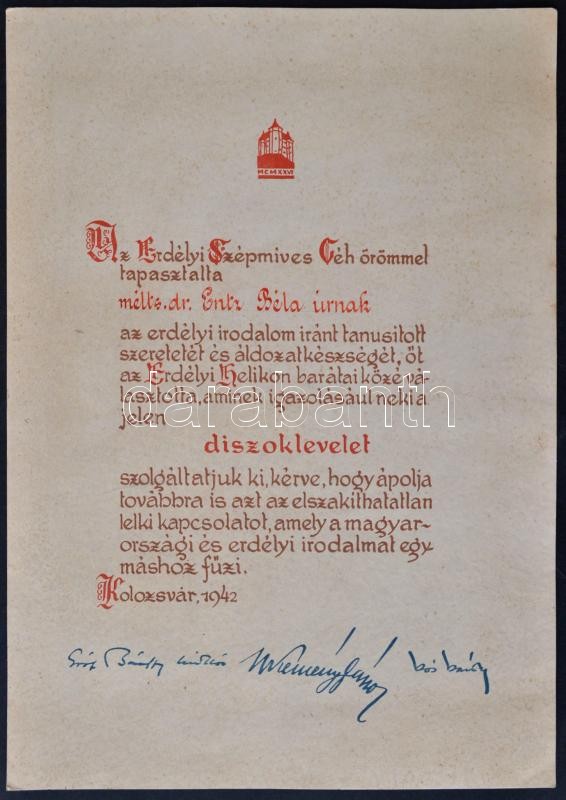 MCMXXVI
Az Erdélyi Szépmives Céh örömmel
tapasztalta
mélts. dr. Entz Béla úrnak
az erdélyi irodalom iránt tanusitott
szeretetét és áldozatkészségét, őt
az Erdélyi Helikon barátai közévá-
lasztotta, aminek igazolásául neki a
jelen
diszoklevelet
szolgáltatjuk ki, kérve, hogy ápolja
továbbra is azt az elszakithatatlan
lelki kapcsolatot, amely a magyar-
országi és erdélyi irodalmat egy-
máshoz fűzi.
Kolozsvár, 1942
Gróf Bánffy Miklós Kemény János Kós Károly
darabanth